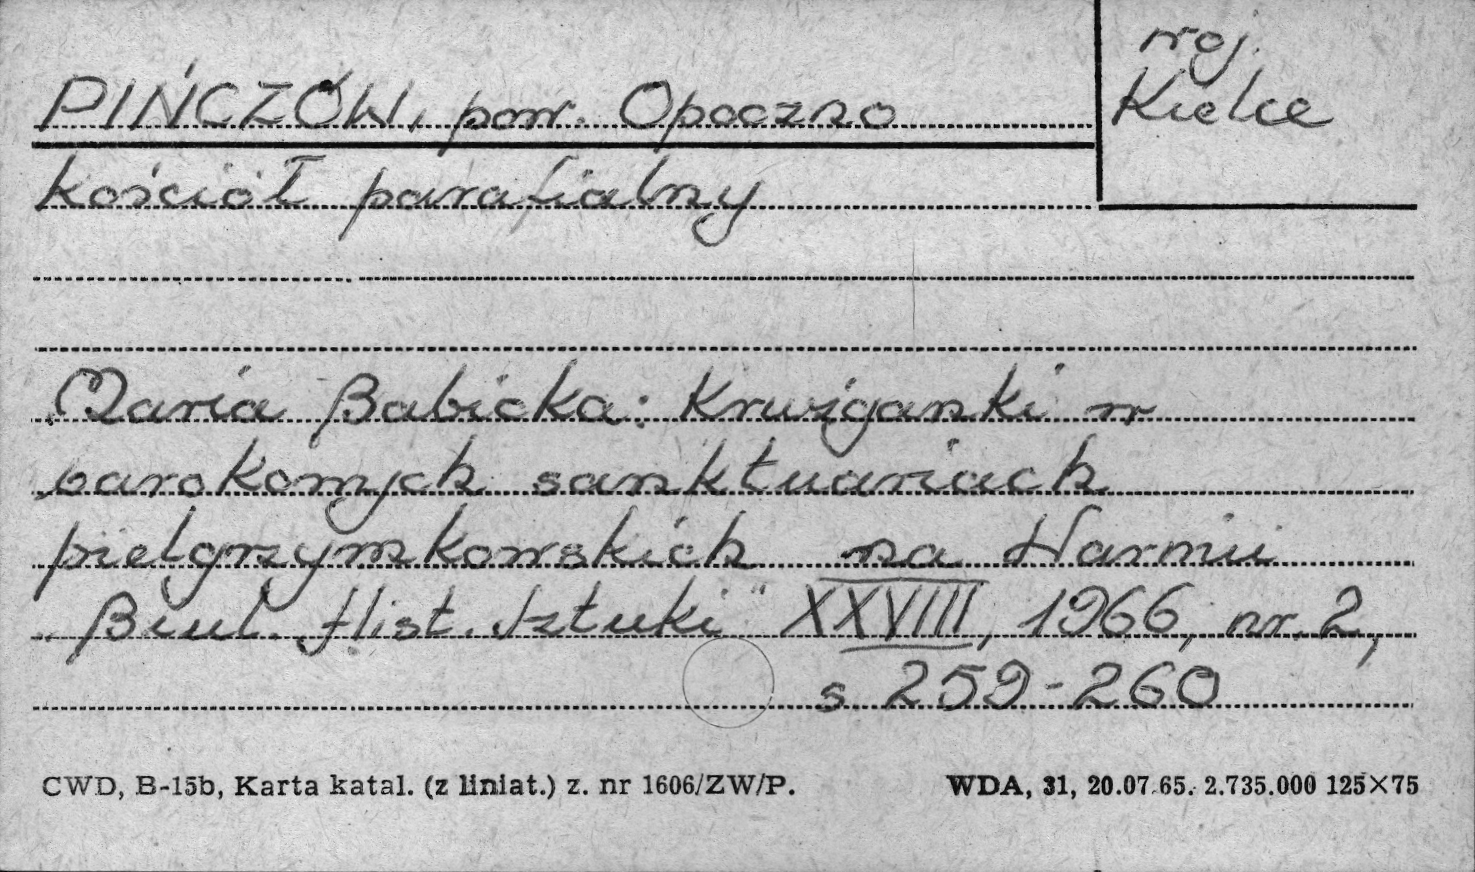 woj.
Kielce
PIŃCZÓW, pow. Opoczno
kościół parafialny
Maria Babicka: Krużganki w
barokowych sanktuariach
pielgrzymkowskich na Warmii
"Biul. Hist. Sztuki" XXVIII, 1966, nr. 2,
s. 259-260
CWD, B-15b, Karta katal. (z liniat.) z. nr 1606/ZW/P.
WDA, 31, 20.07.65. 2.735.000 125×75